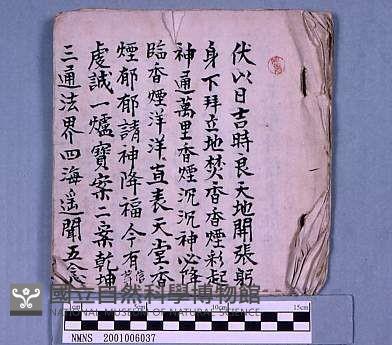 伏以日吉時良天地開張躬
身下拜立地焚香香煙彩起
神通萬里香煙沉沉神必降
臨香煙洋洋直表天堂香
煙郁郁請神降福今有
虔誠一爐寶案二案乾坤
三通法界四海遥聞五念
國立自然科學博物館
NATIONAL MUSEUM OF NATURAL SCIENCE
5cm 10cm 15cm
NMNS 2001006037